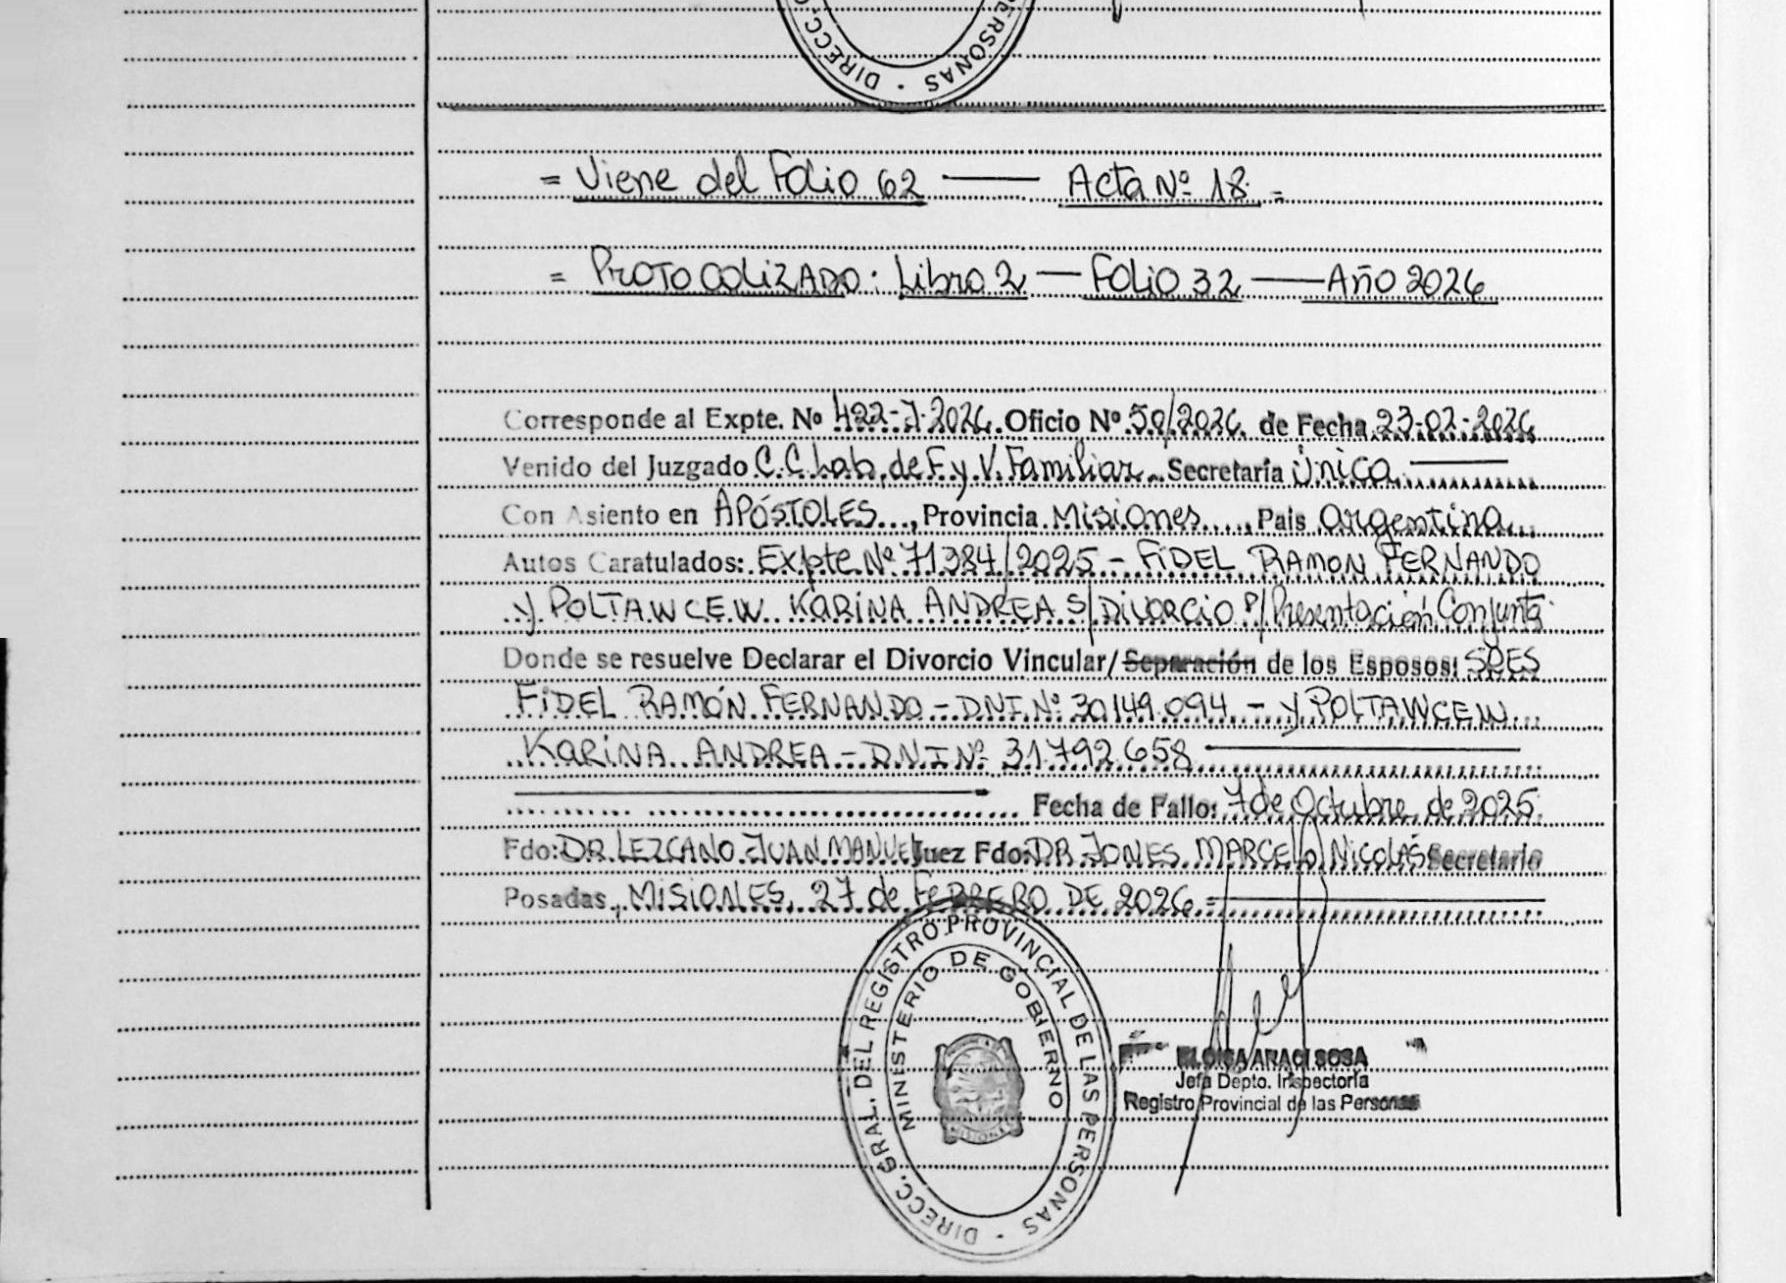 DIRECC. PERSONAS
= Viene del Folio 62 —— Acta Nº 18 =
= PROTOCOLIZADO: Libro 2 — Folio 32 —— Año 2026
Corresponde al Expte. Nº 422-7-2026. Oficio Nº 50/2026. de Fecha 23-02-2026
Venido del Juzgado C.C. Lab. de F. y V. Familiar. Secretaría Única.
Con Asiento en APÓSTOLES..., Provincia Misiones...., País Argentina..
Autos Caratulados: Expte Nº 71384/2025 - FIDEL RAMON FERNANDO
y POLTAWCEW KARINA ANDREA S/ DIVORCIO P/ Presentación Conjunta
Donde se resuelve Declarar el Divorcio Vincular/Separación de los Esposos: SRES
FIDEL RAMÓN FERNANDO - D.N.I. Nº 30.149.094 - y POLTAWCEW
KARINA ANDREA - D.N.I Nº 31.792.658
Fecha de Fallo: 7 de Octubre de 2025.
Fdo: DR. LEZCANO JUAN MANUEL Juez Fdo: DR. JONES MARCELO NICOLÁS Secretario
Posadas, MISIONES, 27 de FEBRERO DE 2026
DIRECC. GRAL. DEL REGISTRO PROVINCIAL DE LAS PERSONAS
MINISTERIO DE GOBIERNO
ELOISA ARACI SOSA
Jefa Depto. Inspectoría
Registro Provincial de las Personas